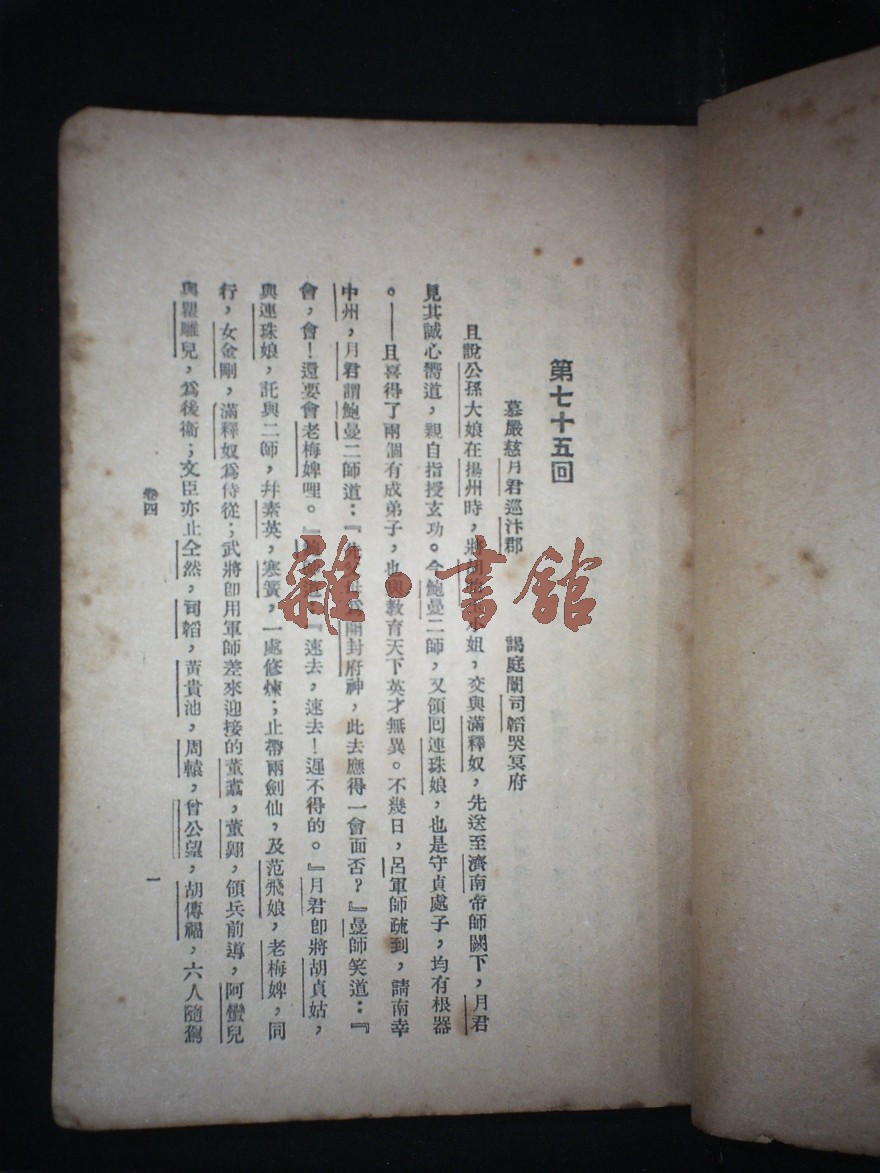 第七十五回
慕嚴慈月君巡汴郡 謁庭闈司韜哭冥府
且說公孫大娘在揚州時，將胡小姐，交與滿釋奴，先送至濟南帝師闕下，月君
見其誠心嚮道，親自指授玄功。今鮑曼二師，又領回連珠娘，也是守貞處子，均有根器
。——且喜得了兩個有成弟子，也與教育天下英才無異。不幾日，呂軍師疏到，請南幸
中州，月君謂鮑曼二師道：『先父母為開封府神，此去應得一會面否？』曼師笑道：『
會，會！還要會老梅婢哩。』道：『速去，速去！遲不得的。』月君卽將胡貞姑，
與連珠娘，託與二師，幷素英，寒簧，一處修煉；止帶兩劍仙，及范飛娘，老梅婢，同
行，女金剛，滿釋奴為侍從；武將卽用軍師差來迎接的董翥，董翱，領兵前導，阿蠻兒
與瞿雕兒，為後衛；文臣亦止仝然，司韜，黃貴池，周轅，曾公望，胡傳福，六人隨駕
卷四
一
雜·書館